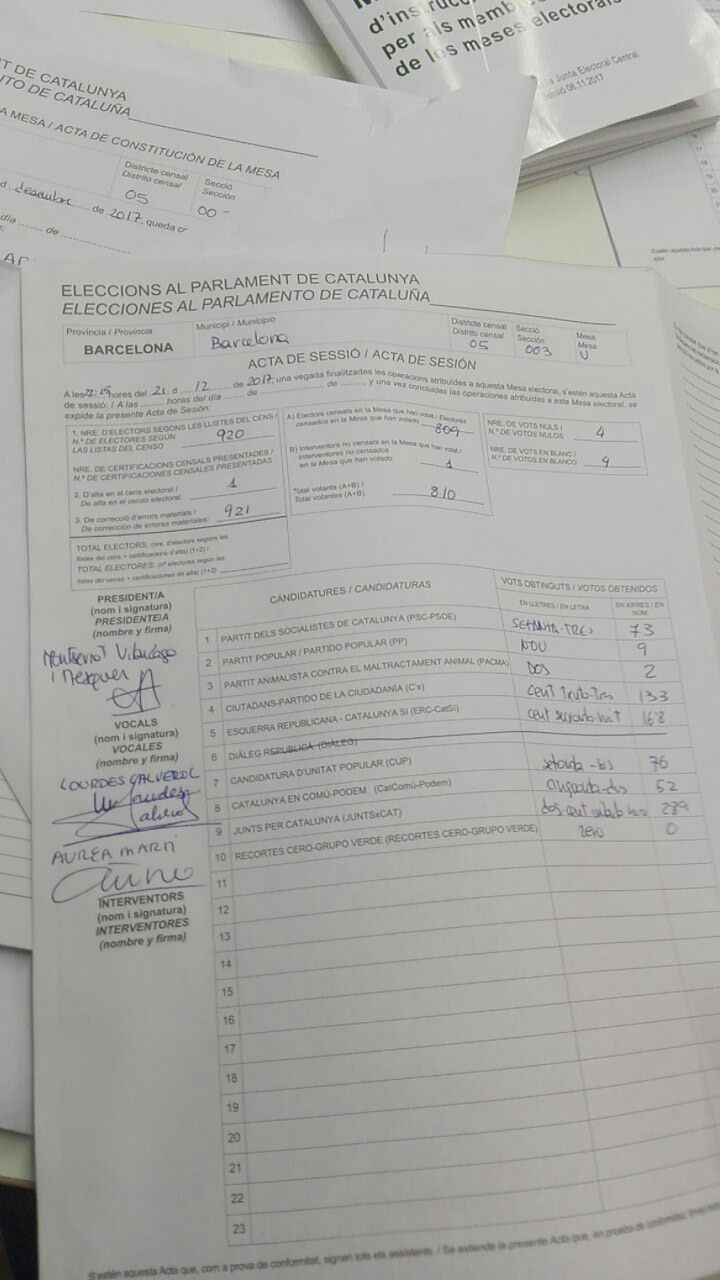 d'instrucc
per als memb
de les meses electorals
la Junta Electoral Central
08.11.2017
T DE CATALUNYA
TO DE CATALUÑA
A MESA / ACTA DE CONSTITUCIÓN DE LA MESA
Districte censal
Distrito censal
05
Secció
Sección
00
desembre de 2017, queda
día de
ELECCIONS AL PARLAMENT DE CATALUNYA
ELECCIONES AL PARLAMENTO DE CATALUÑA
Província / Provincia
BARCELONA
Municipi / Municipio
Barcelona
Districte censal
Distrito censal
05
Secció
Sección
003
Mesa
Mesa
U
ACTA DE SESSIÓ / ACTA DE SESIÓN
A les hores del 21 d 12 de 2017, una vegada finalitzades les operacions atribuïdes a aquesta Mesa electoral, s'estén aquesta Acta
de sessió: / A las horas del día de de , y una vez concluidas las operaciones atribuidas a esta Mesa electoral, se
expide la presente Acta de Sesión:
1. NRE. D'ELECTORS SEGONS LES LLISTES DEL CENS /
N.º DE ELECTORES SEGÚN
LAS LISTAS DEL CENSO 920
NRE. DE CERTIFICACIONS CENSALS PRESENTADES /
N.º DE CERTIFICACIONES CENSALES PRESENTADAS
2. D'alta en el cens electoral /
De alta en el censo electoral: 1
3. De correcció d'errors materials /
De corrección de errores materiales: 921
TOTAL ELECTORS: (nre. d'electors segons les
llistes del cens + certificacions d'alta) (1+2) /
TOTAL ELECTORES: (nº electores según las
listas del censo + certificaciones de alta) (1+2)
A) Electors censats en la Mesa que han votat / Electores
censados en la Mesa que han votado 809
B) Interventors no censats en la Mesa que han votat /
Interventores no censados
en la Mesa que han votado 1
Total votants (A+B) /
Total votantes (A+B) 810
NRE. DE VOTS NULS /
N.º DE VOTOS NULOS 4
NRE. DE VOTS EN BLANC /
N.º DE VOTOS EN BLANCO 4
PRESIDENT/A
(nom i signatura)
PRESIDENTE/A
(nombre y firma)
Montserrat
VOCALS
(nom i signatura)
VOCALES
(nombre y firma)
LOURDES
AUREA MARTI
INTERVENTORS
(nom i signatura)
INTERVENTORES
(nombre y firma)
CANDIDATURES / CANDIDATURAS
VOTS OBTINGUTS / VOTOS OBTENIDOS
EN LLETRES / EN LETRA
EN XIFRES / EN
NÚM.
1 PARTIT DELS SOCIALISTES DE CATALUNYA (PSC-PSOE) SETANTA-TRES 73
2 PARTIT POPULAR / PARTIDO POPULAR (PP) NOU 9
3 PARTIT ANIMALISTA CONTRA EL MALTRACTAMENT ANIMAL (PACMA) DOS 2
4 CIUTADANS-PARTIDO DE LA CIUDADANÍA (C's) cent trenta-tres 133
5 ESQUERRA REPUBLICANA - CATALUNYA SÍ (ERC-CatSí) cent seixanta-vuit 168
6 DIÀLEG REPUBLICÀ (DIÀLEG)
7 CANDIDATURA D'UNITAT POPULAR (CUP) setanta-sis 76
8 CATALUNYA EN COMÚ-PODEM (CatComú-Podem) cinquanta-dos 52
9 JUNTS PER CATALUNYA (JUNTSxCAT) dos-cent 289
10 RECORTES CERO-GRUPO VERDE (RECORTES CERO-GRUPO VERDE) zero 0
11
12
13
14
15
16
17
18
19
20
21
22
23
S'estén aquesta Acta que, com a prova de conformitat, signen tots els assistents. / Se extiende la presente Acta que, en prueba de conformidad,